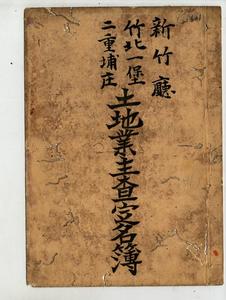 新竹廳
竹北一堡
二重埔庄
土地業主查定名簿